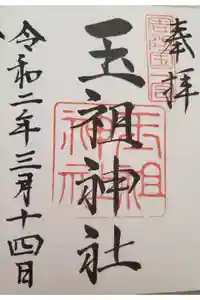 奉拝
玉祖神社
玉祖神社
令和二年三月十四日